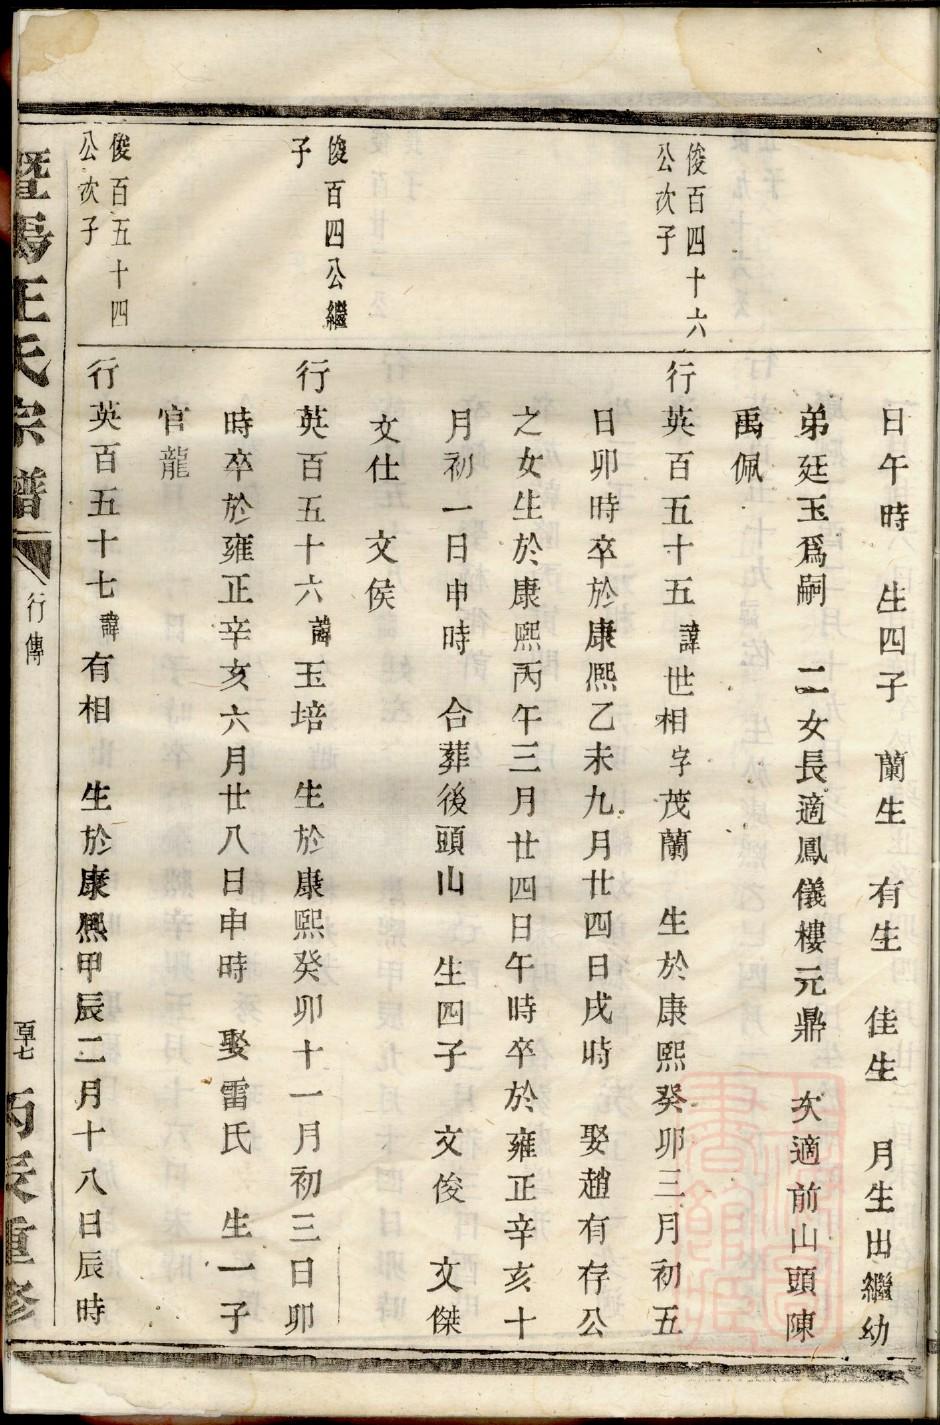 日午時　生四子　蘭生　有生　佳生　月生出繼幼
弟廷玉爲嗣　二女長適鳳儀樓元鼎　次適前山頭陳
禹佩
俊百四十六
公次子
行英百五十五諱世相字茂蘭　生於康熙癸卯三月初五
日卯時卒於康熙乙未九月廿四日戌時　娶趙有存公
之女生於康熙丙午三月廿四日午時卒於雍正辛亥十
月初一日申時　合葬後頭山　生四子　文俊　文傑
文仕　文侯
俊百四公繼
子
行英百五十六諱玉培　生於康熙癸卯十一月初三日卯
時卒於雍正辛亥六月廿八日申時　娶雷氏　生一子
官龍
俊百五十四
公次子
行英百五十七諱有相　生於康熙甲辰二月十八日辰時
暨陽汪氏宗譜　行傳　丙辰重修